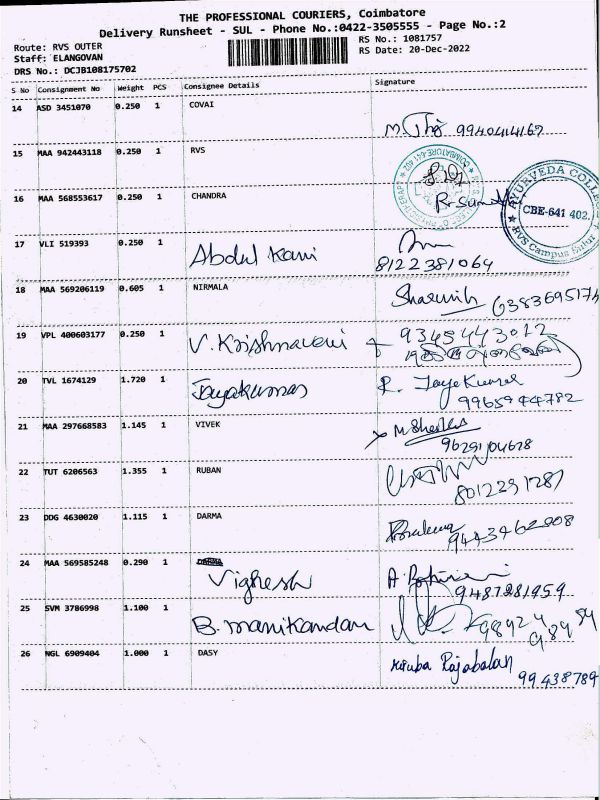 THE PROFESSIONAL COURIERS, Coimbatore
Delivery Runsheet - SUL - Phone No.:0422-3505555 - Page No.:2
Route: RVS OUTER
RS No.: 1081757
Staff: ELANGOVAN
RS Date: 20-Dec-2022
DRS No.: DCJB108175702
S No Consignment No Weight PCS Consignee Details Signature
14 ASD 3451070 0.250 1 COVAI
9940414167
15 MAA 942443118 0.250 1 RVS
16 MAA 568553617 0.250 1 CHANDRA
AYURVEDA COLLEGE
CBE-641 402.
RVS Campus Sulur
17 VLI 519393 0.250 1 Abdul Kani
8122381064
18 MAA 569206119 0.605 1 NIRMALA
6383695174
19 VPL 400603177 0.250 1 V. Krishnaveni 9345443012
20 TVL 1674129 1.720 1 Jayakumar R. Jayakumar
9965944782
21 MAA 297668583 1.145 1 VIVEK
9629104678
22 TUT 6206563 1.355 1 RUBAN
8012291287
23 DDG 4630020 1.115 1 DARMA
9443762008
24 MAA 569585248 0.290 1 Vignesh
9487281959
25 SVM 3786998 1.100 1 B. manikandan
98924
98954
26 NGL 6909404 1.000 1 DASY Kiruba Rajabalan
99438789